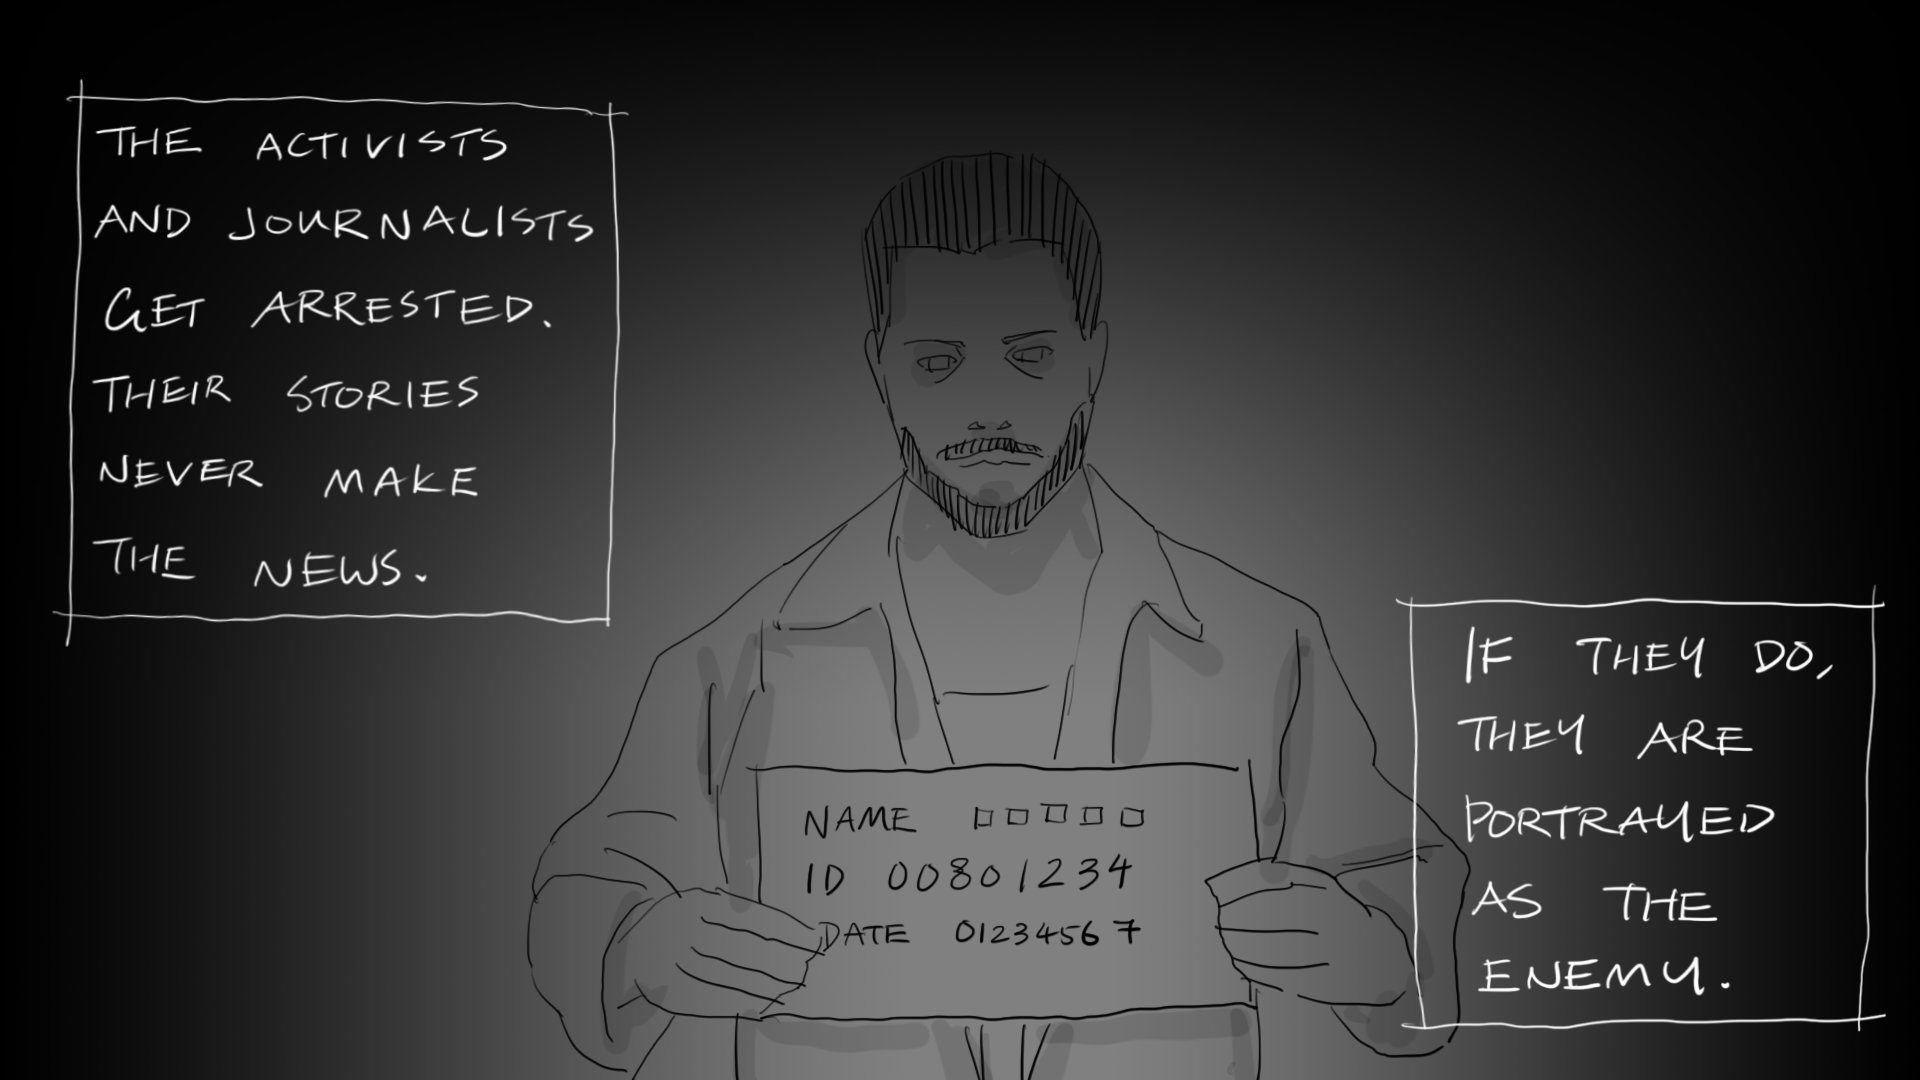 THE ACTIVISTS
AND JOURNALISTS
GET ARRESTED.
THEIR STORIES
NEVER MAKE
THE NEWS.
NAME □□□□□
ID 00801234
DATE 01234567
IF THEY DO,
THEY ARE
PORTRAYED
AS THE
ENEMY.